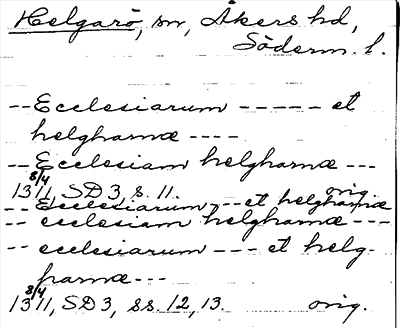 Helgarö, sn, Åkers hd,
Söderm. l.
-- Ecclesiarum ----- et
helgharnæ ----
-- Ecclesiam helgharnæ ---
13 8/4 11, SD 3 s. 11. orig.
-- Ecclesiarum --- et helgharnæ
-- ecclesiam helgharnæ ---
-- ecclesiarum --- et helg-
harnæ ---
13 8/4 11, SD 3, ss. 12, 13. orig.